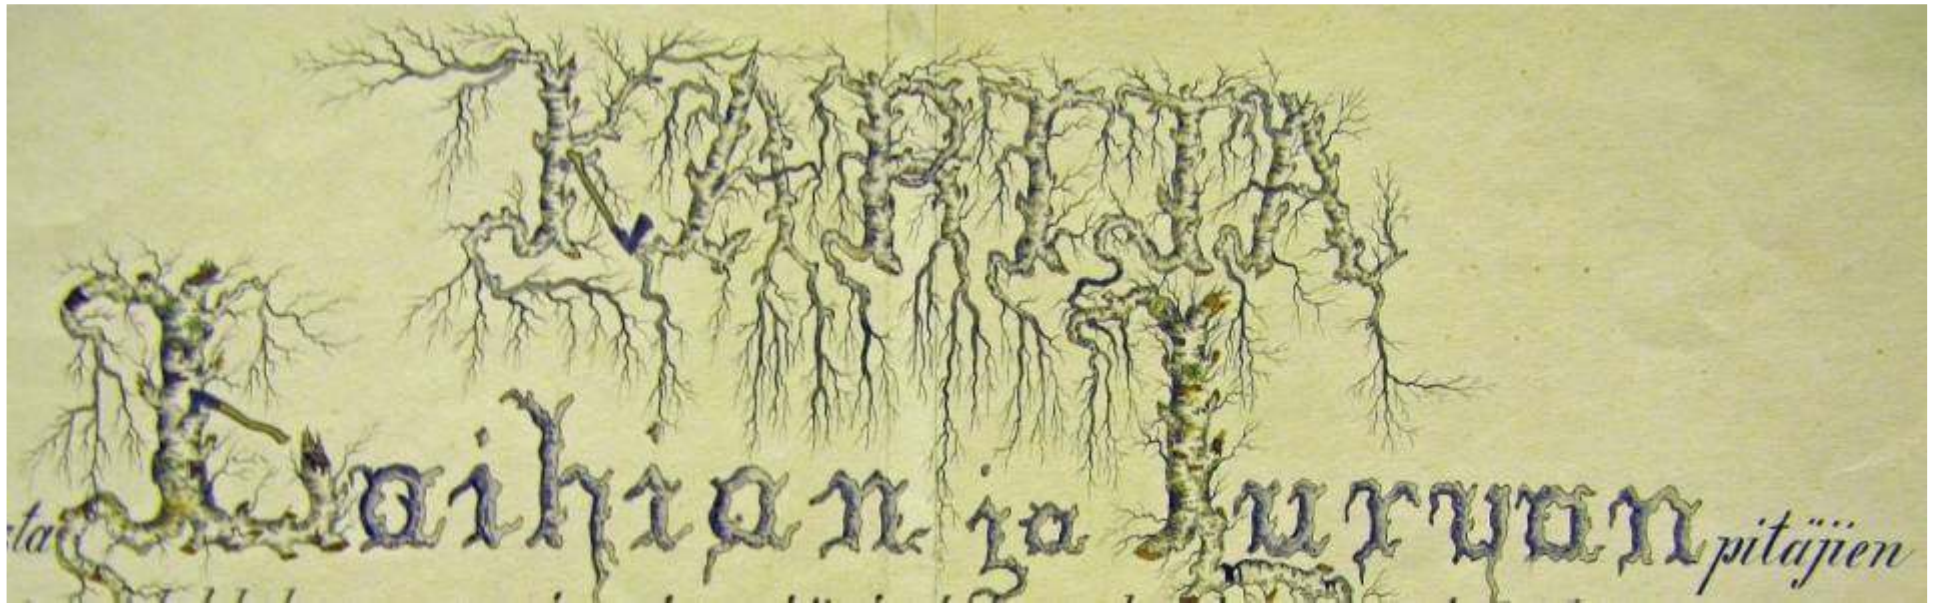 KARTTA
Laihian ja Jurvan pitäjien